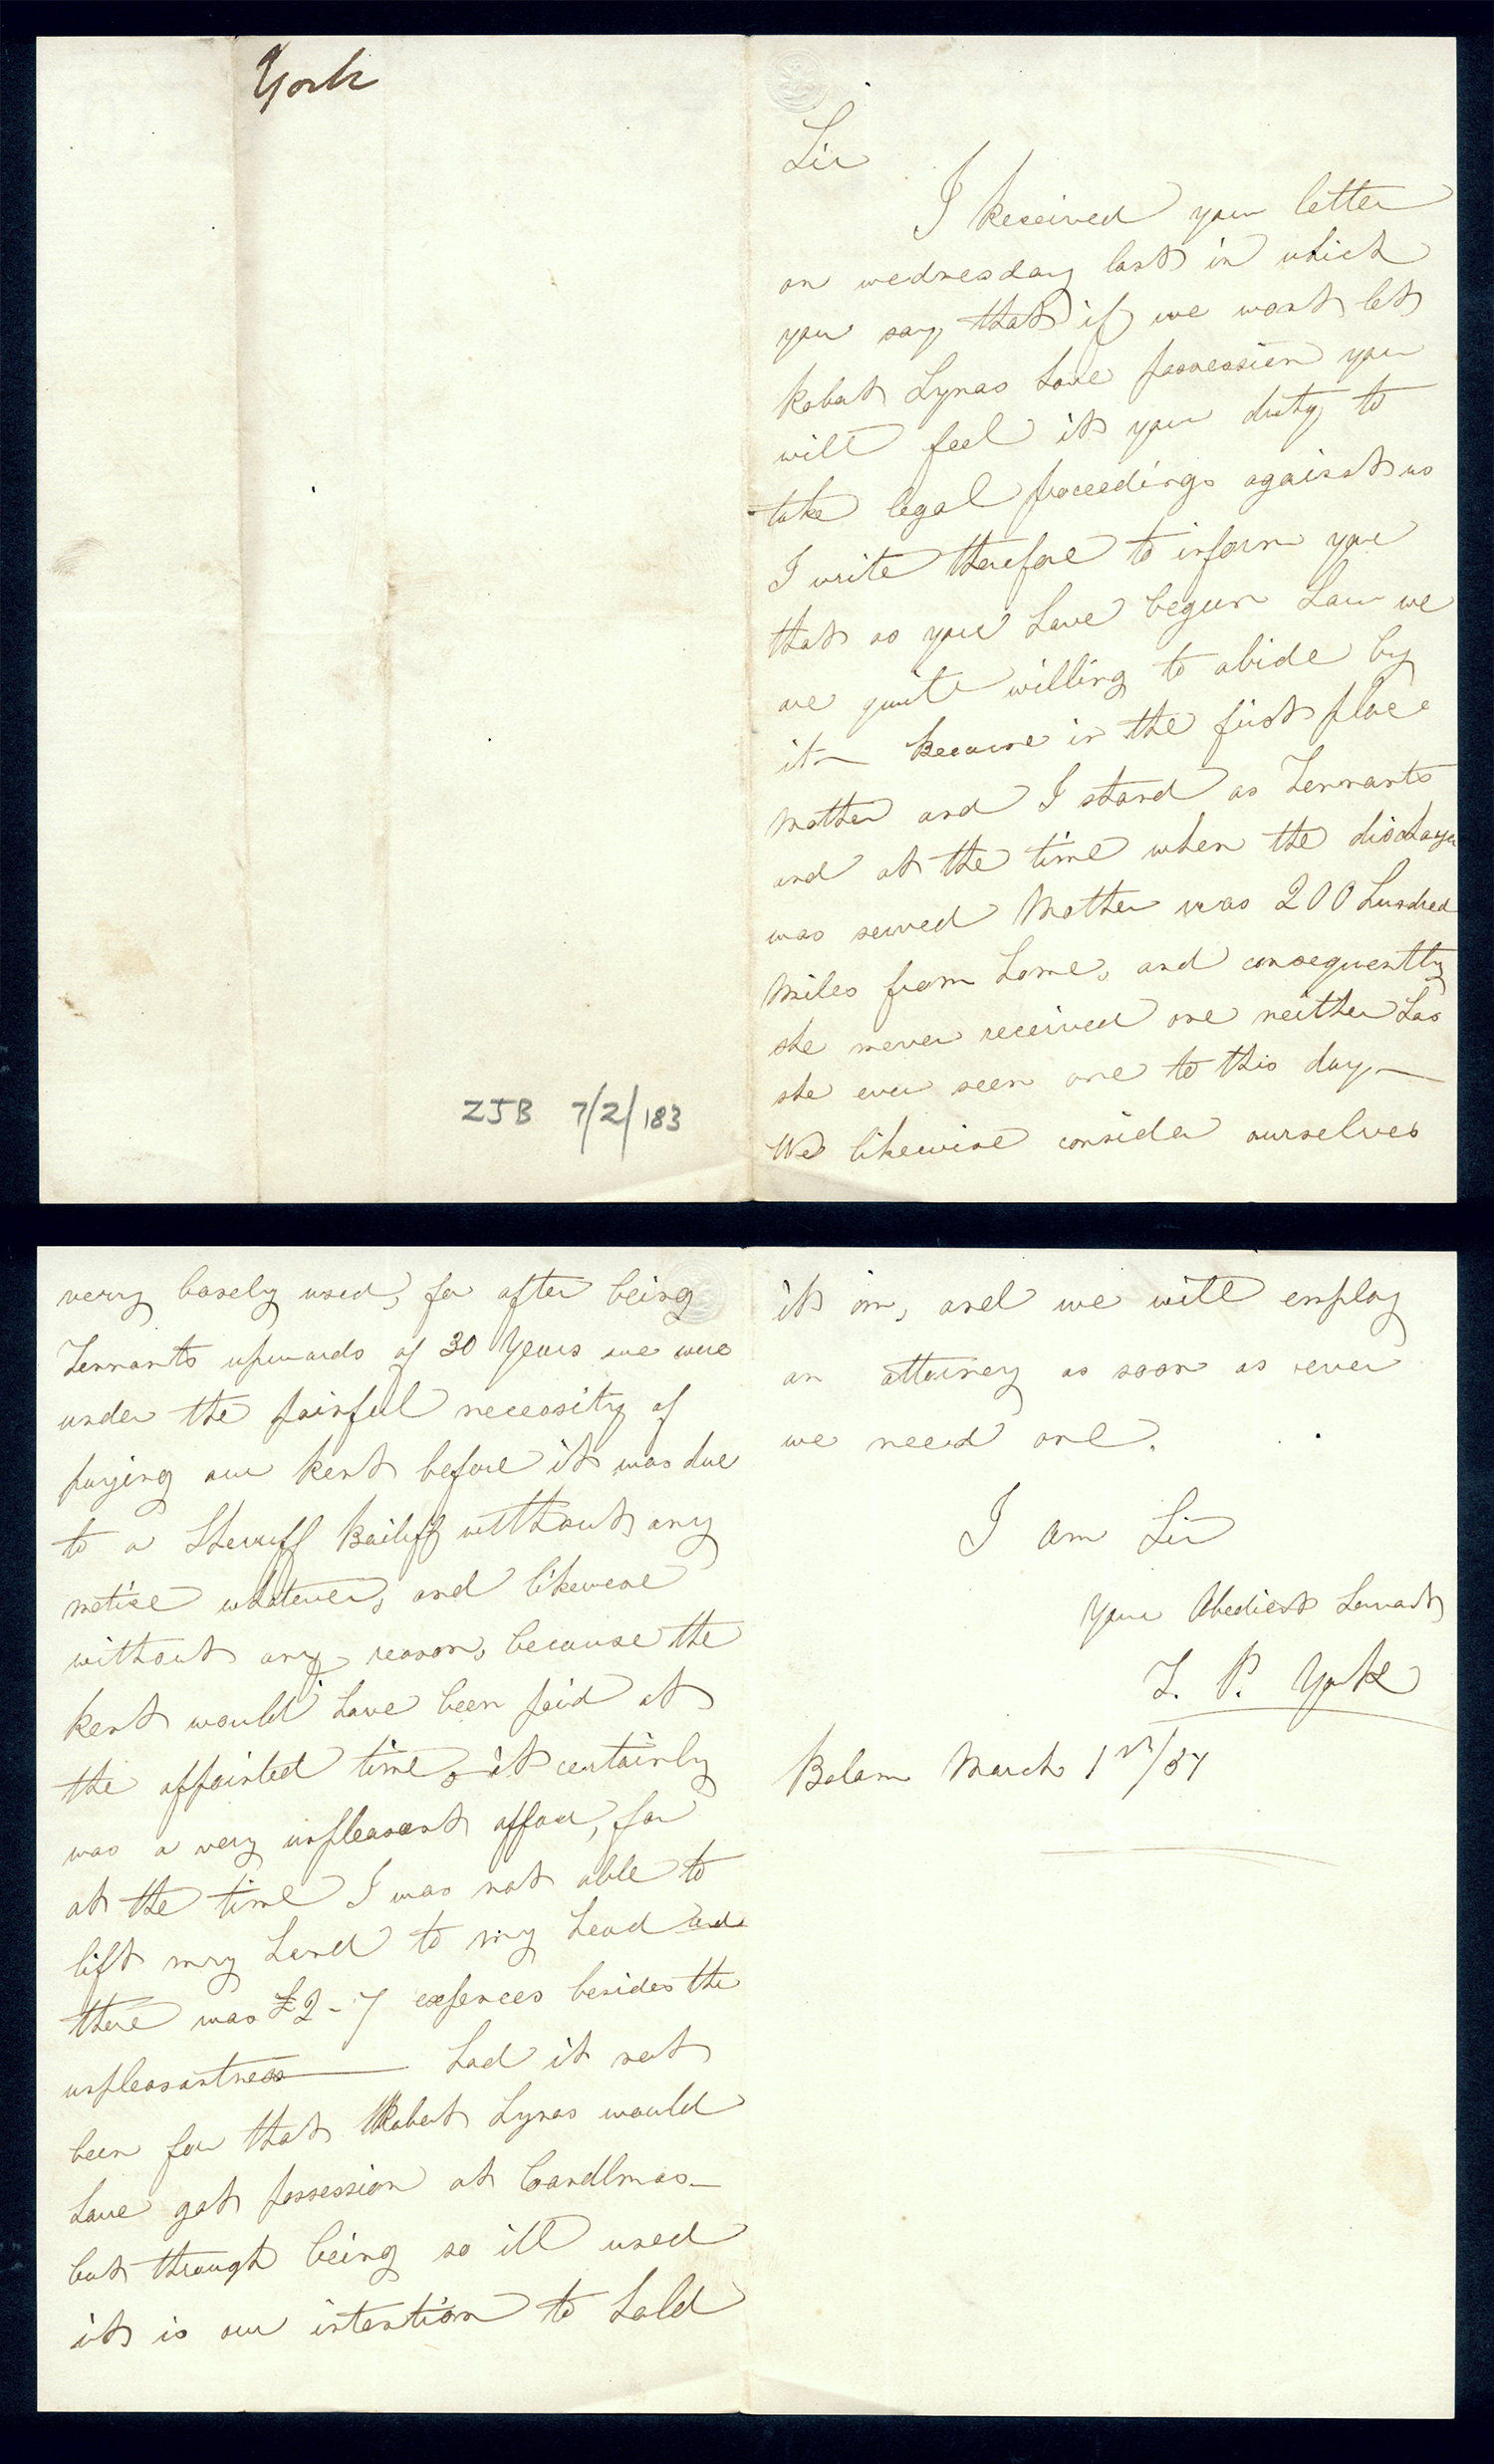 York
ZJB 7/2/183
Sir
I Received your letter
on wednesday last in which
you say that if we wont let
Robert Lynas have possession you
will feel it your duty to
take legal proceedings against us
I write therefore to inform you
that as you have begun Law we
are quite willing to abide by
it — Because in the first place
Mother and I stand as Tennants
and at the time when the discharge
was served Mother was 200 hundred
Miles from home, and consequently
she never received one neither has
she ever seen one to this day —
We likewise consider ourselves
very basely used, for after being
Tennants upwards of 30 Years we were
under the painful necessity of
paying our Rent before it was due
to a Sheriff Bailiff without any
notice whatever, and likewise
without any reason, because the
Rent would have been paid at
the appointed time, it certainly
was a very unpleasant affair, for
at the time I was not able to
lift my hand to my head and
there was £2-7 expences besides the
unpleasantness — had it not
been for that Robert Lynas would
have got possession at Candlmas —
but through being so ill used
it is our intention to hold
it on, and we will employ
an attorney as soon as ever
we need one.
I am Sir
Your Obedient Servant
T. P. York
Bolam March 1st/57